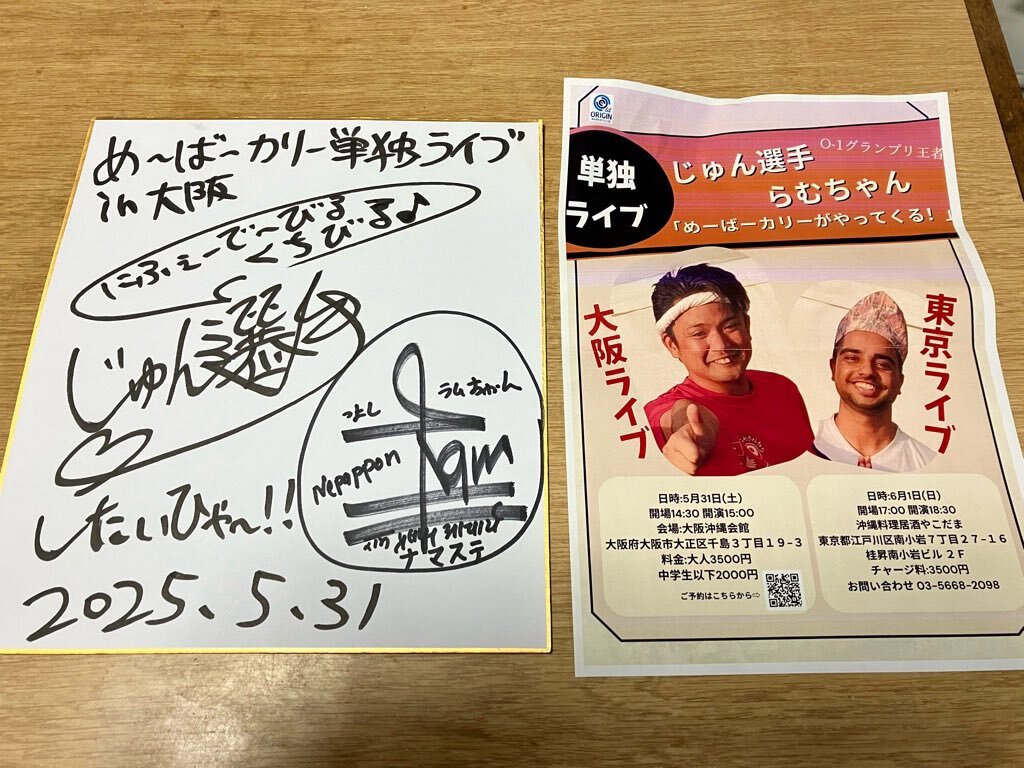 め〜ば〜カリー単独ライブ
in大阪
にふぇーで〜びる
くちびる♪
じゅん選手
したいひゃ〜!!
2025.5.31
つよし
ラムちゃん
Nepappon
Ram
ナマステ
ORIGIN
単独
ライブ
O-1グランプリ王者
じゅん選手
らむちゃん
「めーばーカリーがやってくる！」
大阪ライブ
東京ライブ
日時:5月31日(土)
開場14:30 開演15:00
会場:大阪沖縄会館
大阪府大阪市大正区千島３丁目１９−３
料金:大人3500円
中学生以下2000円
ご予約はこちらから⇨
日時:6月1日(日)
開場17:00 開演18:30
沖縄料理居酒やこだま
東京都江戸川区南小岩７丁目２７−１６
桂昇南小岩ビル ２Ｆ
チャージ料:3500円
お問い合わせ 03-5668-2098